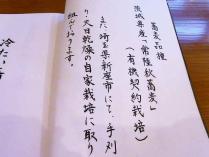 蕎麦品種
茨城県産「常陸秋蕎麦」
(有機契約栽培)
また、埼玉県新座市にて、手刈
り、天日乾燥の自家栽培に取り
組んでおります。
冷たい